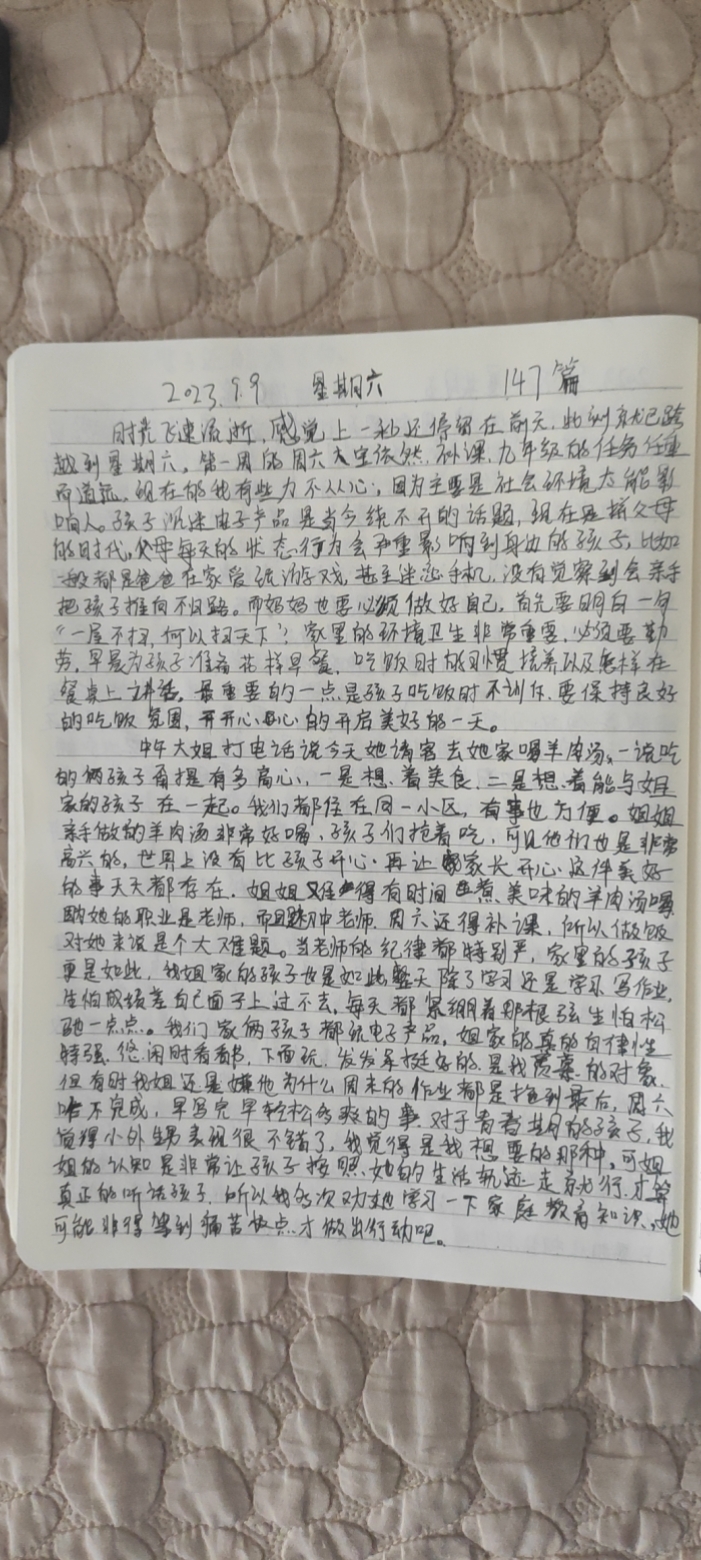 2023.9.9 星期六 147篇
时光飞速流逝,感觉上一秒还停留在前天,此刻就已跨
越到星期六,第一周的周六大宝依然补课,九年级的任务任重
而道远。现在的我有些力不从心,因为主要是社会环境太能影
响人。孩子沉迷电子产品是当今绕不开的话题,现在是拼父母
的时代,父母每天的状态行为会严重影响到身边的孩子,比如
一般都是爸爸在家爱玩游戏,甚至迷恋手机,没有觉察到会亲手
把孩子推向不归路。而妈妈也要必须做好自己,首先要明白一句
“一屋不扫,何以扫天下”?家里的环境卫生非常重要,必须要勤
劳,早晨为孩子准备花样早餐,吃饭时的习惯培养以及怎样在
餐桌上讲话,最重要的一点是孩子吃饭时不训斥,要保持良好
的吃饭氛围,开开心心的开启美好的一天。
中午大姐打电话说今天她请客去她家喝羊肉汤,一说吃
的俩孩子甭提有多高心,一是想着美食,二是想着能与姐
家的孩子在一起。我们都住在同一小区,有事也方便。姐姐
亲手做的羊肉汤非常好喝,孩子们抢着吃,可见他们也是非常
高兴的,世界上没有比孩子开心再让家长开心这件美好
的事天天都存在,姐姐难得有时间煮美味的羊肉汤喝
她的职业是老师,而且是初中老师,周六还得补课,所以做饭
对她来说是个大难题。当老师的纪律都特别严,家里的孩子
更是如此,我姐家的孩子也是如此整天除了学习还是学习写作业,
生怕成绩差自己面子上过不去,每天都紧绷着那根弦生怕松
驰一点点。我们家俩孩子都玩电子产品,姐家的真的自律性
特强,悠闲时看看书,下面玩,发发呆挺好的,是我羡慕的对象,
但有时我姐还是嫌他为什么周末的作业都是拖到最后,周六
不完成,早写完早轻松多爽的事,对于青春期的孩子,我
觉得小外甥表现很不错了,我觉得是我想要的那种,可姐
姐的认知是非常让孩子按照她的生活轨迹走就行,才算
真正的听话孩子,所以我多次劝她学习一下家庭教育知识,她
可能非得等到痛苦极点才做出行动吧。